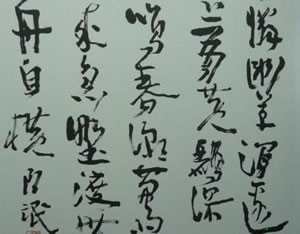 憐幽草澗邊
上有黃鸝深
鳴春潮帶雨
來急野渡無
舟自橫